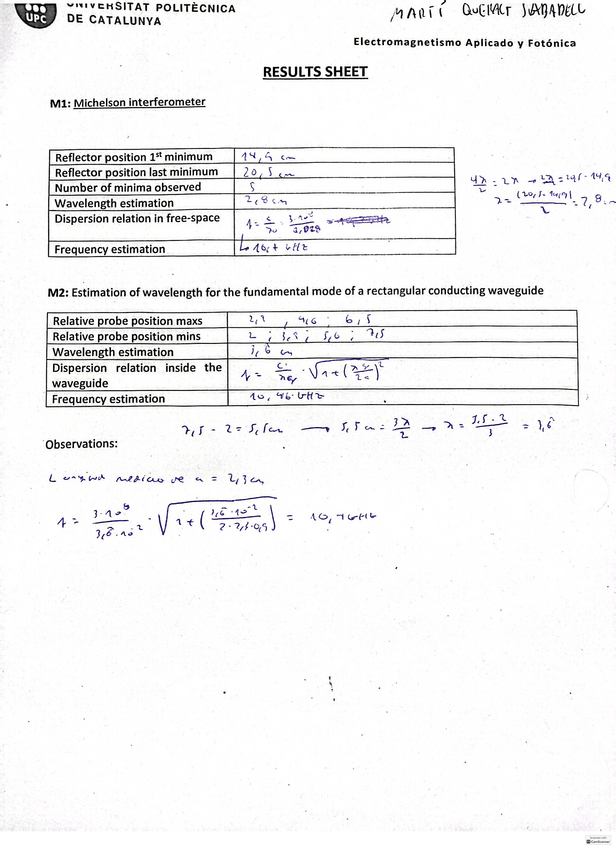 UNIVERSITAT POLITÈCNICA
DE CATALUNYA
UPC
MARTÍ QUERALT SABADELL
Electromagnetismo Aplicado y Fotónica
RESULTS SHEET
M1: Michelson interferometer
Reflector position 1st minimum 14,9 cm
Reflector position last minimum 20,5 cm
Number of minima observed 5
Wavelength estimation 2,8 cm
Dispersion relation in free-space f = c/λ0 = 3·10^8/0,028
Frequency estimation 10,7 GHz
4λ/2 = 2λ → 2λ = 20,5 - 14,9
λ = (20,5-14,9)/2 = 2,8
M2: Estimation of wavelength for the fundamental mode of a rectangular conducting waveguide
Relative probe position maxs 2,7 , 4,6 ; 6,5
Relative probe position mins 2 ; 3,8 ; 5,6 ; 7,5
Wavelength estimation 3,6 cm
Dispersion relation inside the waveguide f = c/λg · √(1+(λg/2a)^2)
Frequency estimation 10,46 GHz
7,5 - 2 = 5,5cm → 5,5 cm = 3λ/2 → λ = 5,5·2/3 = 3,6
Observations:
a = 2,3cm
f = 3·10^8/3,6·10^-2 · √(1+(3,6·10^-2/2·2,3·0,9)) = 10,46GHz
CamScanner